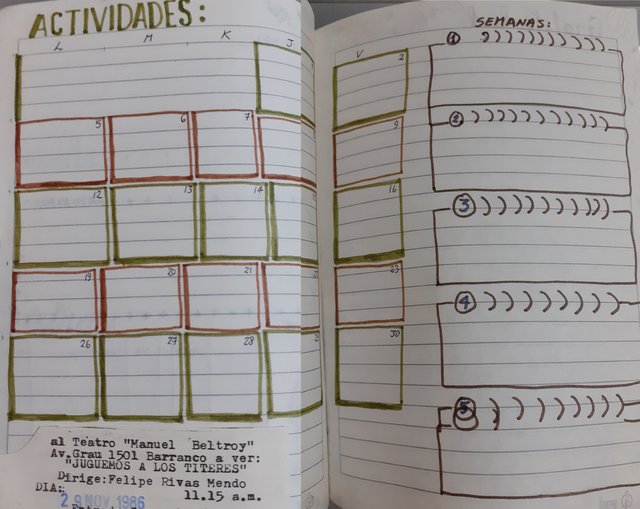 ACTIVIDADES:
L M K J
5 6 7
12 13 14
19 20 21
26 27 28
al Teatro "Manuel Beltroy"
Av.Grau 1501 Barranco a ver:
"JUGUEMOS A LOS TITERES"
Dirige:Felipe Rivas Mendo
DIA: 11.15 a.m.
29 NOV 1986
V
2
9
16
23
30
SEMANAS:
1
2
3
4
5